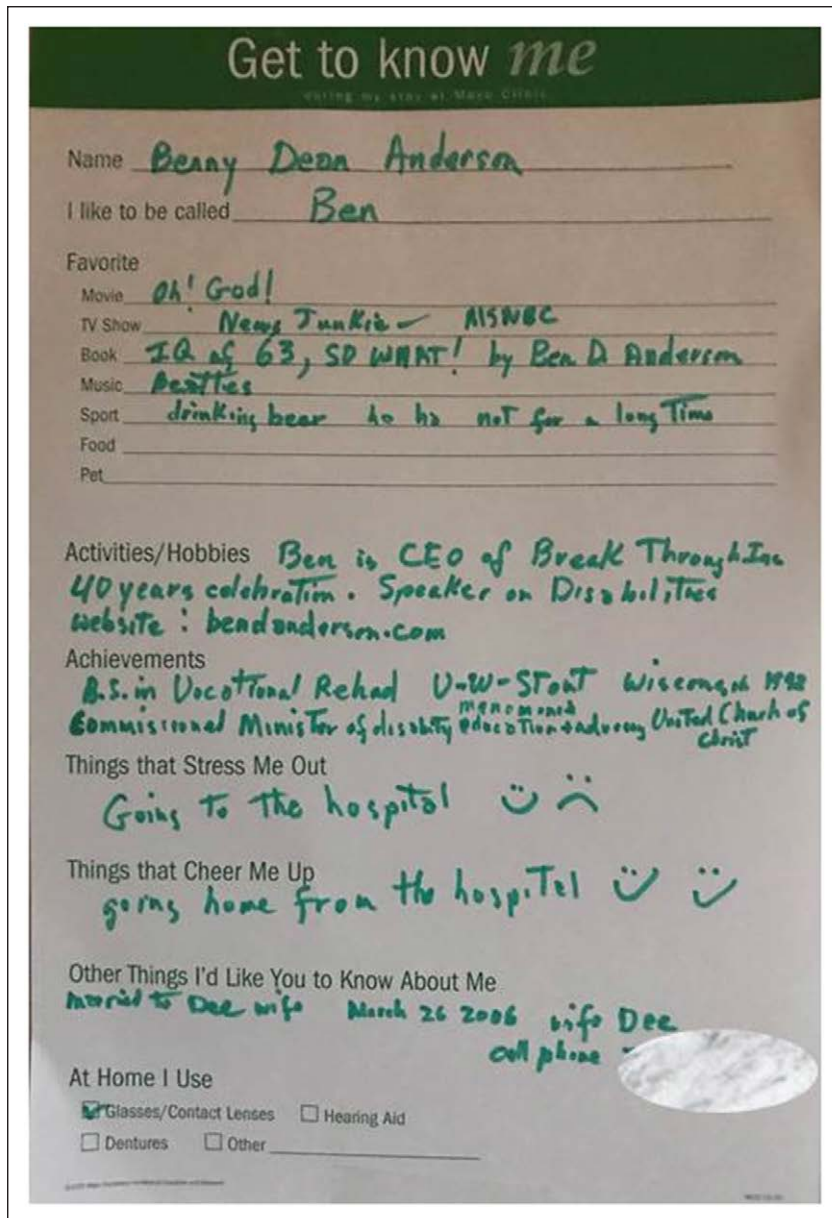 Get to know me
during my stay at Mayo Clinic
Name Benny Dean Anderson
I like to be called Ben
Favorite
Movie Oh! God!
TV Show News Junkie - MSNBC
Book IQ of 63, SO WHAT! by Ben D. Anderson
Music Beatles
Sport drinking bear ho ho not for a long Time
Food
Pet
Activities/Hobbies Ben is CEO of Break Through.Inc
40 years celebration. Speaker on Disabilities
website : bendanderson.com
Achievements
B.S. in Vocational Rehab U-W-Stout Wisconsin
menomonie
Commissioned Minister of disability education + advocacy United Church of
Christ
Things that Stress Me Out
Going To The hospital
Things that Cheer Me Up
going home from the hospiTal
Other Things I'd Like You to Know About Me
married to Dee wife March 26 2006 wife Dee
cell phone
At Home I Use
Glasses/Contact Lenses Hearing Aid
Dentures Other